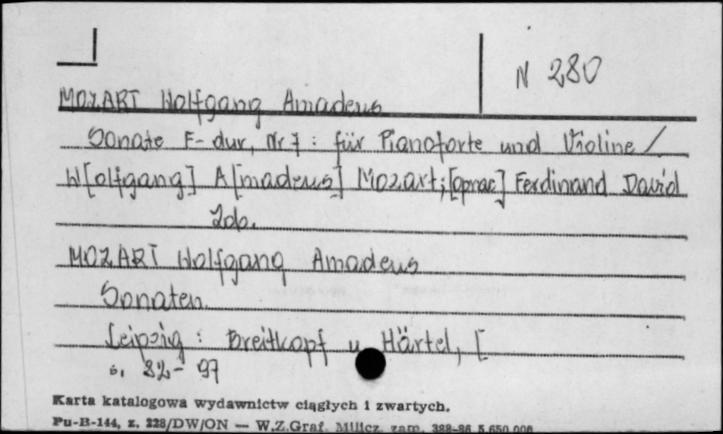 N 280
MOZART Wolfgang Amadeus
Sonate F-dur, Nr 7 : für Pianoforte und Violine /
W[olfgang] A[madeus] Mozart; [oprac] Ferdinand David
Zob.
MOZART Wolfgang Amadeus
Sonaten.
Leipzig : Breitkopf u Härtel, [
s. 82-97
Karta katalogowa wydawnictw ciągłych i zwartych.
Pu-B-144, z. 228/DW/ON — W.Z.Graf. Milicz zam. 388-86 5.650.000